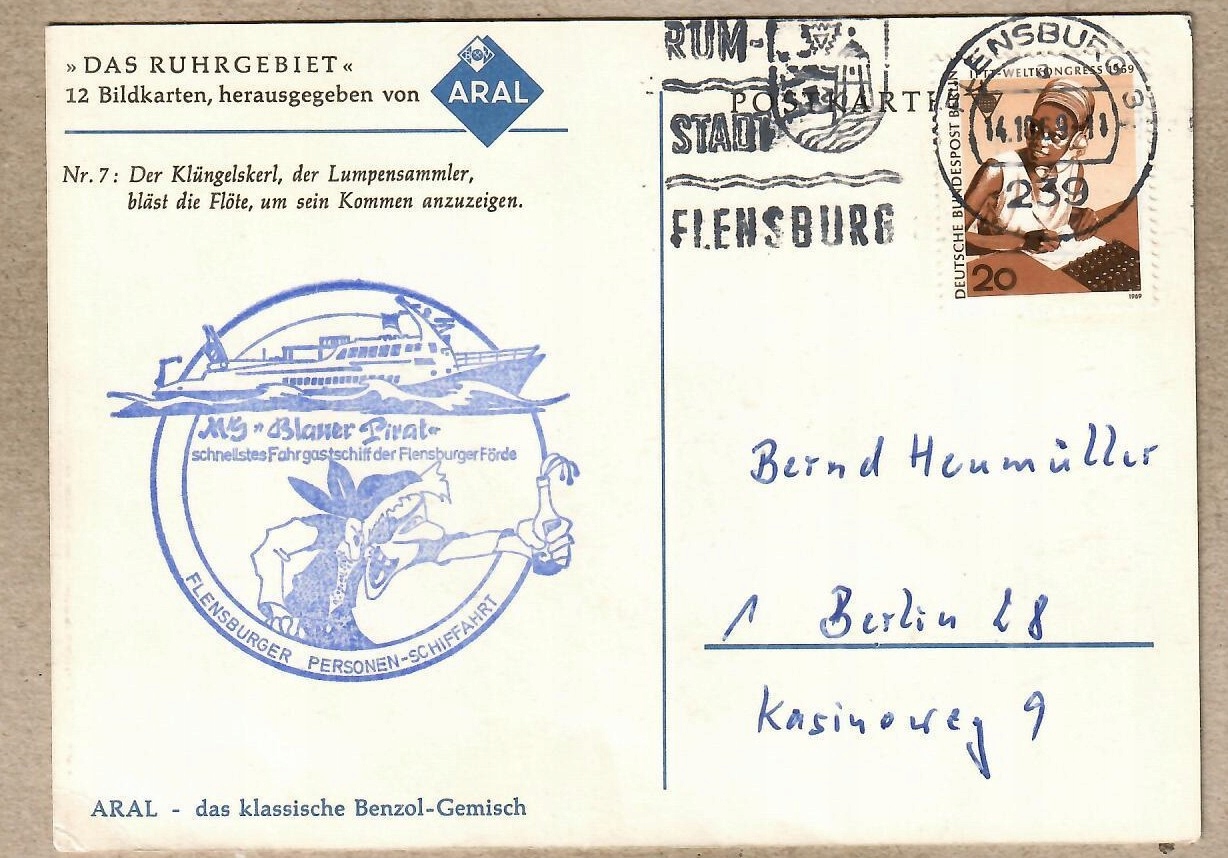 »DAS RUHRGEBIET«
12 Bildkarten, herausgegeben von
B V
ARAL
Nr. 7: Der Klüngelskerl, der Lumpensammler,
bläst die Flöte, um sein Kommen anzuzeigen.
MS »Blauer Pirat«
schnellstes Fahrgastschiff der Flensburger Förde
FLENSBURGER PERSONEN-SCHIFFAHRT
ARAL - das klassische Benzol-Gemisch
RUM-
STADT
FLENSBURG
POSTKARTE
FLENSBURG
239
IPTT-WELTKONGRESS 1969
DEUTSCHE BUNDESPOST BERLIN
20
1969
Bernd Heumüller
1 Berlin 28
Kasinoweg 9